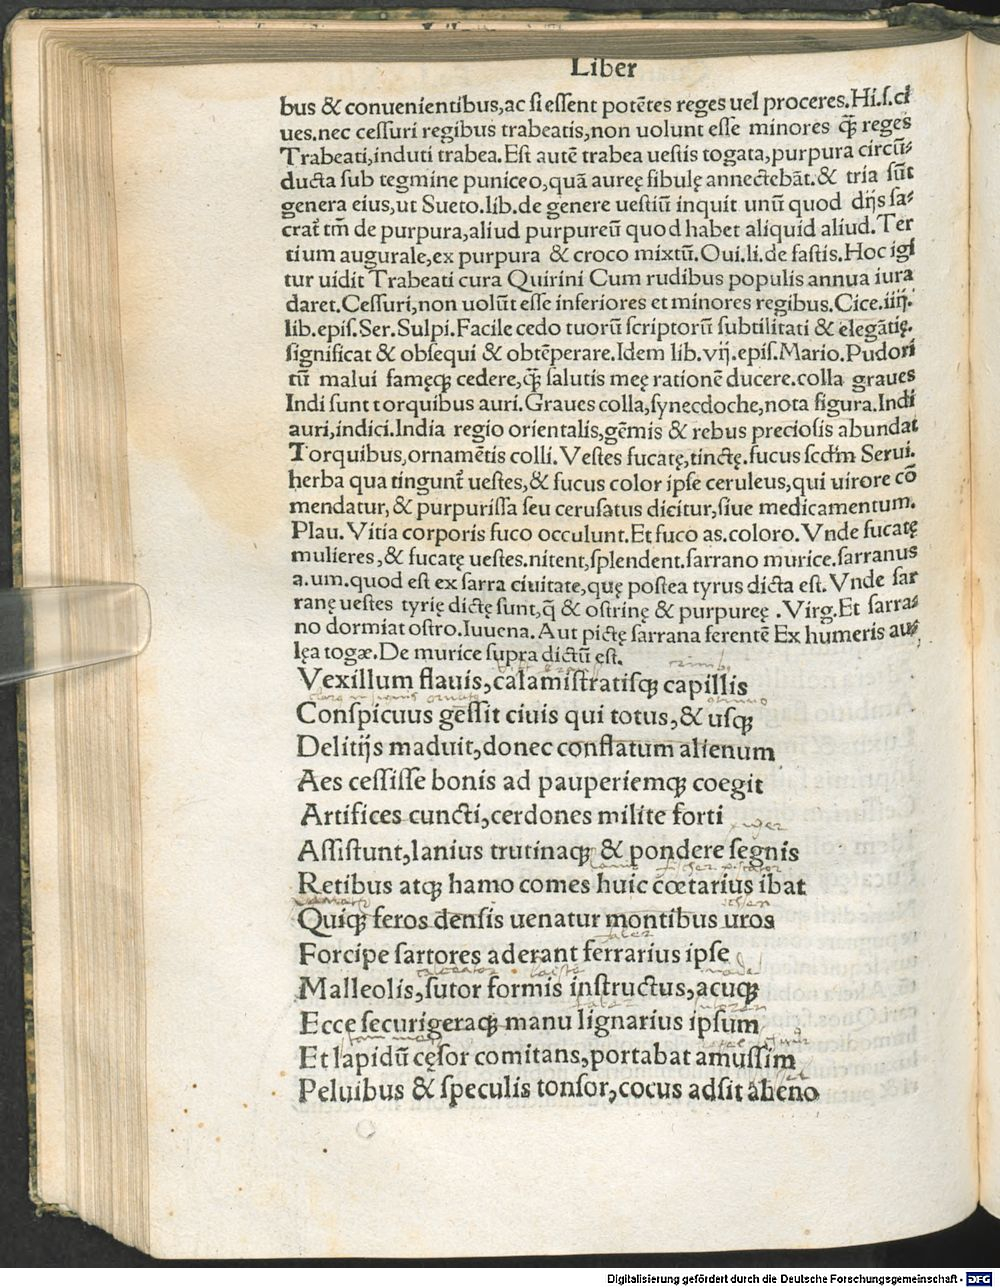 Liber
bus & conuenientibus,ac ſi eſſent potẽtes reges uel proceres.Hi.ſ.ci
ues.nec ceſſuri regibus trabeatis,non uolunt eſſe minores q̃ꝫ reges
Trabeati,induti trabea.Eſt autẽ trabea ueſtis togata,purpura circũ⸗
ducta ſub tegmine puniceo,quã aureę fibulę annectebãt.& tria ſũt
genera eius,ut Sueto.lib.de genere ueſtiũ inquit unũ quod dijs ſa⸗
crat᷑ tm̃ de purpura,aliud purpureũ quod habet aliquid aliud.Ter
tium augurale,ex purpura & croco mixtũ.Oui.li.de faſtis.Hoc igi
tur uidit Trabeati cura Quirini Cum rudibus populis annua iura
daret.Ceſſuri,non uolũt eſſe inferiores et minores regibus.Cice.iiij.
lib.epiſ.Ser.Sulpi.Facile cedo tuorũ ſcriptorũ ſubtilitati & elegãtię.
ſignificat & obſequi & obtẽperare.Idem lib.vij.epiſ.Mario.Pudori
tũ malui famęqꝫ cedere,q̃ꝫ ſalutis meę rationẽ ducere.colla graues
Indi ſunt torquibus auri.Graues colla,ſynecdoche,nota figura.Indi
auri,indici.India regio orientalis,gẽmis & rebus precioſis abundat
Torquibus,ornamẽtis colli.Veſtes fucatę,tinctę.fucus ſcdm̃ Serui.
herba qua tingunt᷑ ueſtes,& fucus color ipſe ceruleus,qui uirore cõ
mendatur,& purpuriſſa ſeu ceruſatus dicitur,ſiue medicamentum.
Plau.Vitia corporis fuco occulunt.Et fuco as.coloro.Vnde fucatę
mulieres,& fucatę ueſtes.nitent,ſplendent.ſarrano murice.ſarranus
a.um.quod eſt ex ſarra ciuitate,quę poſtea tyrus dicta eſt.Vnde ſar
ranę ueſtes tyrię dictę ſunt,q̃ & oſtrinę & purpureę .Virg.Et ſarra⸗
no dormiat oſtro.Iuuena.Aut pictę ſarrana ferentẽ Ex humeris au⸗
lęa togæ.De murice ſupra dictũ eſt.
Vexillum flauis,calamiſtratiſqꝫ capillis
Conſpicuus geſſit ciuis qui totus,& uſqꝫ
Delitijs maduit,donec conflatum alienum
Aes ceſſiſſe bonis ad pauperiemqꝫ coegit
Artifices cuncti,cerdones milite forti
Aſſiſtunt,lanius trutinaqꝫ & pondere ſegnis
Retibus atqꝫ hamo comes huic cœtarius ibat
Quiqꝫ feros denſis uenatur montibus uros
Forcipe ſartores aderant ferrarius ipſe
Malleolis,ſutor formis inſtructus,acuqꝫ
Ecce ſecurigeraqꝫ manu lignarius ipſum
Et lapidũ cęſor comitans,portabat amuſſim
Peluibus & ſpeculis tonſor,cocus adſit aheno
Digitalisierung gefördert durch die Deutsche Forschungsgemeinschaft - DFG